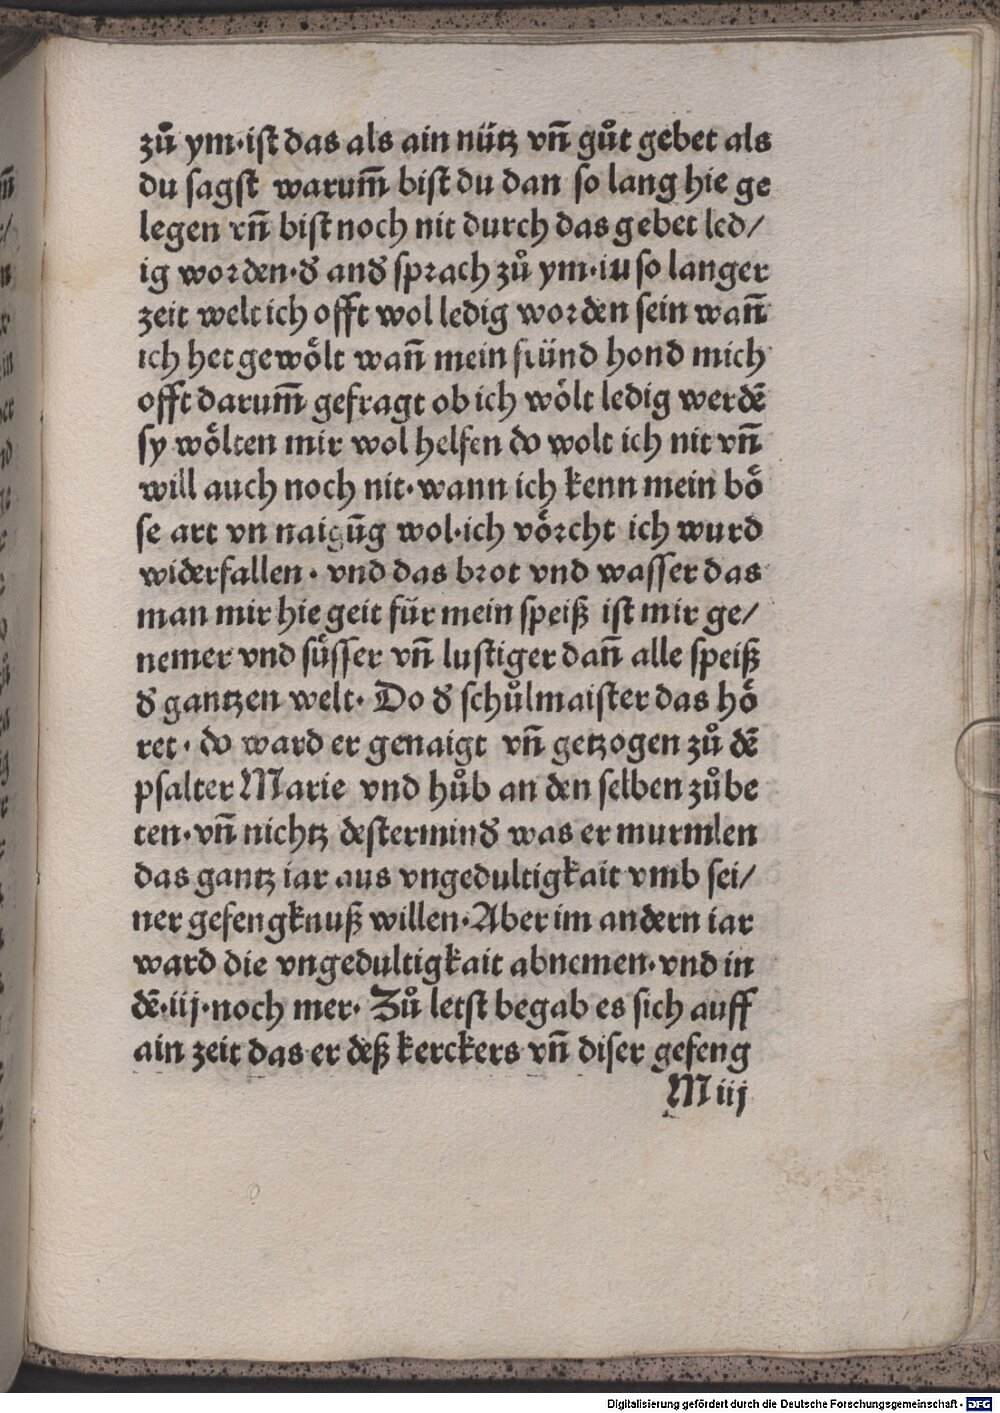 zů ym·ist das als ain nütz vñ gůt gebet als
du sagst warum̄ bist du dan so lang hie ge
legen vñ bist noch nit durch das gebet led/
ig worden·đ anđ sprach zů ym·in so langer
zeit welt ich offt wol ledig worden sein wañ
ich het gewo̊lt wañ mein freünd hond mich
offt darum̄ gefragt ob ich wo̊lt ledig werdē
sy wo̊lten mir wol helfen do wolt ich nit vñ
will auch noch nit·wann ich kenn mein bo̊
se art vn naigūg wol·ich vo̊rcht ich wurd
widerfallen· vnd das brot vnd wasser das
man mir hie geit für mein speiß ist mir ge/
nemer vnd süsser vñ lustiger dañ alle speiß
đ gantzen welt· Do đ schůlmaister das ho̊
ret· do ward er genaigt vñ getzogen zů dē
psalter Marie vnd hůb an den selben zůbe
ten·vñ nichtz desterminđ was er murmlen
das gantz iar aus vngedultigkait vmb sei/
ner gefengknuß willen·Aber im andern iar
ward die vngedultigkait abnemen·vnd in
dē·iij·noch mer· Zů letst begab es sich auff
ain zeit das er deß kerckers vñ diser gefeng
M iij
Digitalisierung gefördert durch die Deutsche Forschungsgemeinschaft - DFG